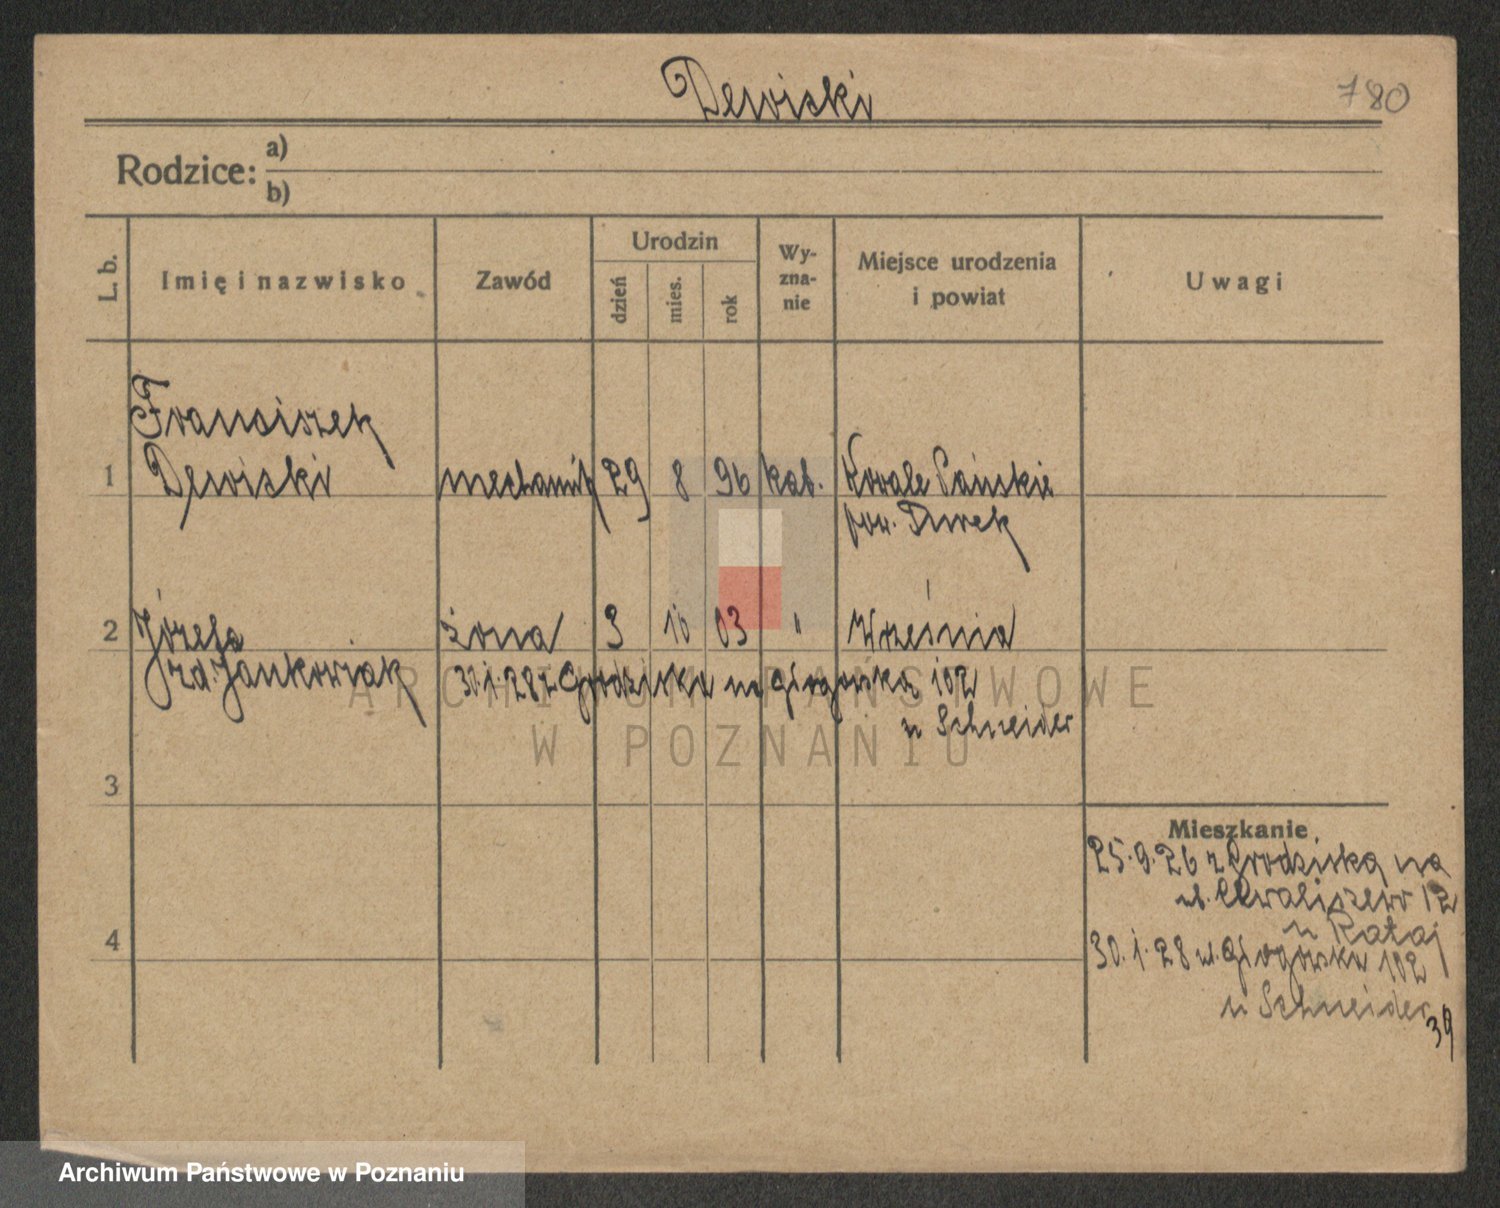 Dewiski
780
Rodzice:
a)
b)
L. b.
Imię i nazwisko
Zawód
Urodzin
dzień
mies.
rok
Wy-
zna-
nie
Miejsce urodzenia
i powiat
Uwagi
Franciszek
1 Dewiski mechanik 29 8 96 kat. Kowale Pańskie
pow. Turek
2 Józefa żona 3 10 03 " Września
zd. Jankowiak 30.1.28 z Grodziska na Głogowską 102
u Schneider
ARCHIWUM PAŃSTWOWE
W POZNANIU
3
Mieszkanie
25.9.26 z Grodziska na
ul. Chwaliszewo 12
u Rataj
4
30.1.28 ul. Głogowska 102
u Schneider
39
Archiwum Państwowe w Poznaniu